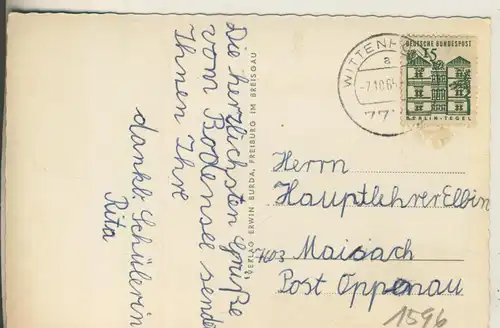 Die herzlichsten Grüße
vom Bodensee sendet
Ihnen Ihre
dankb. Schülerin
Rita
VERLAG ERWIN BURDA, FREIBURG IM BREISGAU
WITTENHOFEN
a
-7.10.65
777
DEUTSCHE BUNDESPOST
15
BERLIN-TEGEL
Herrn
Hauptlehrer Elbin
7603 Maisach
Post Oppenau
1596